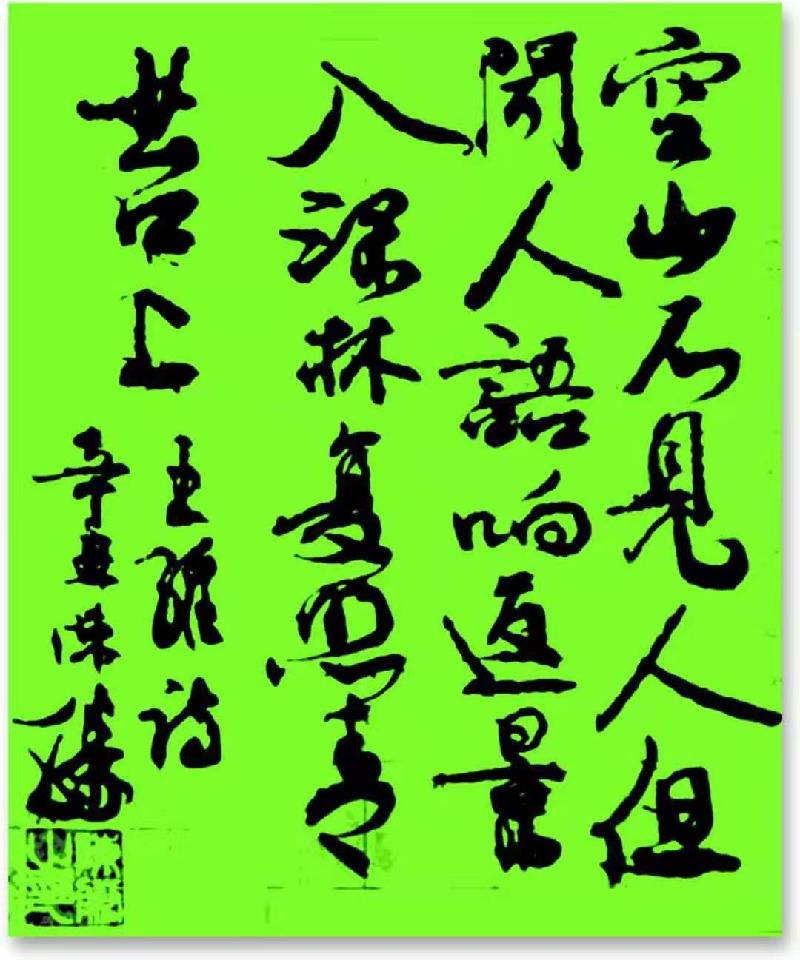 空山不見人但
聞人語响返景
入深林复照青
苔上
王維詩
辛